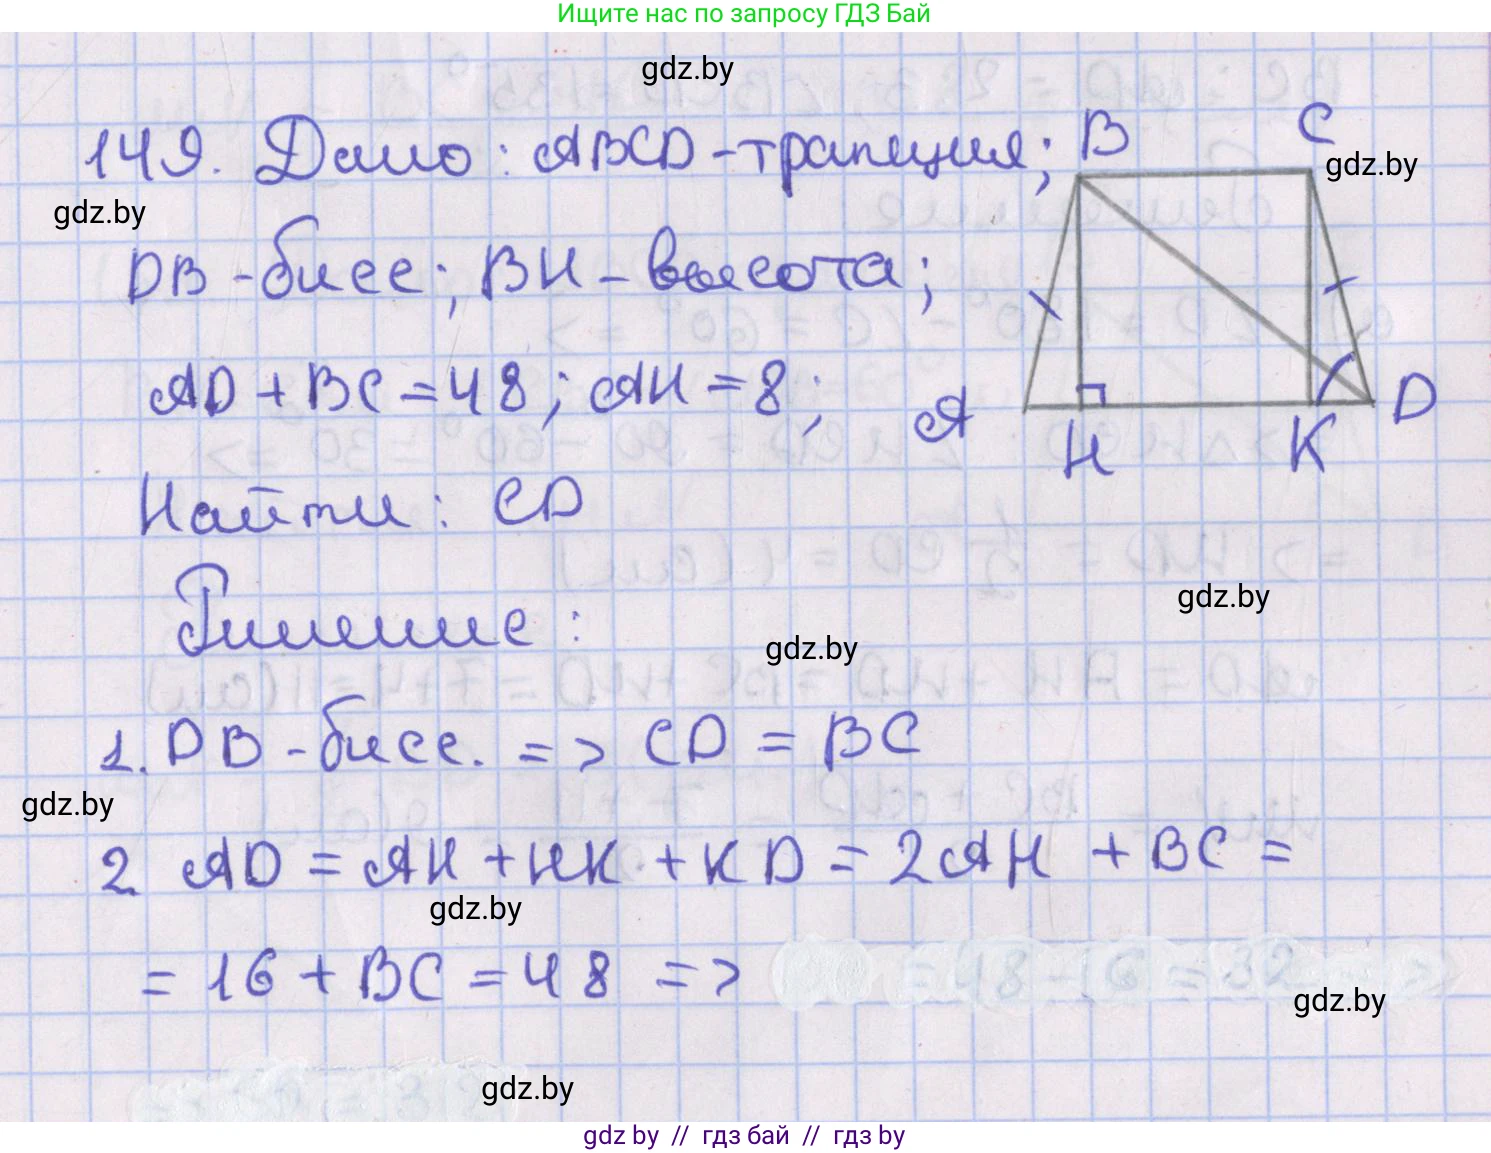 Ищите нас по запросу ГДЗ Бай
gdz.by
149. Дано: ABCD-трапеция;
B
C
gdz.by
gdz.by
DB-бисс; BH-высота;
AD+BC=48; AH=8;
A
H
K
D
Найти: CD
Решение:
gdz.by
gdz.by
1. DB-бисс. => CD = BC
gdz.by
2 AD = AH + HK + KD = 2AH + BC =
gdz.by
= 16 + BC = 48 =>
= 48 - 16 = 32
gdz.by
gdz.by
gdz by // гдз бай // гдз by